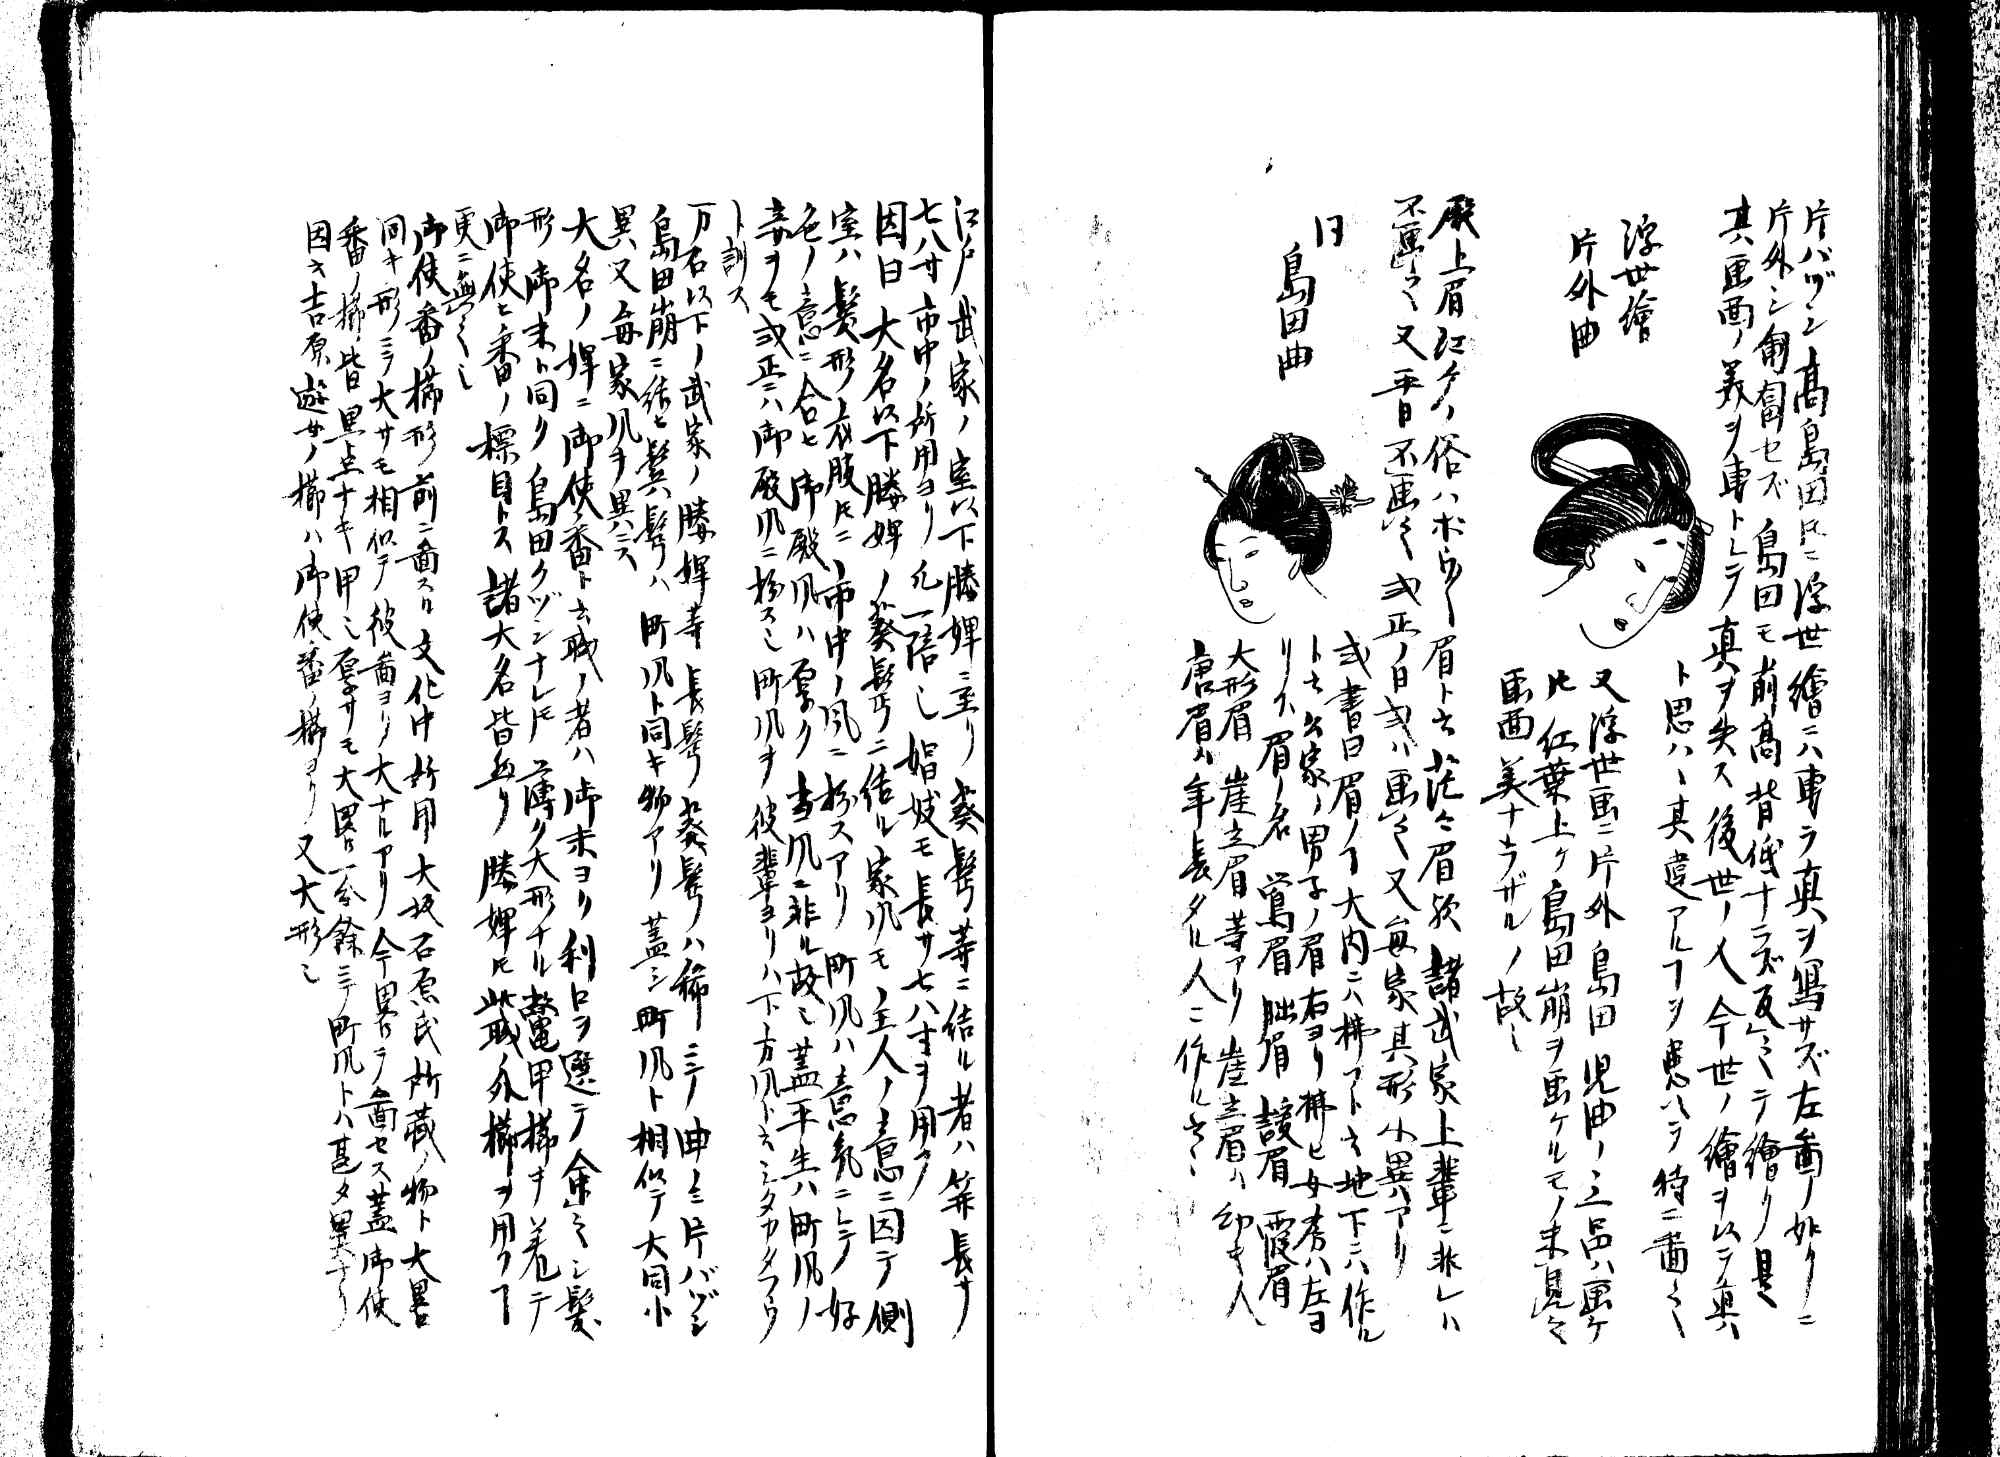 片バヅシ高島田トモニ浮世繪ニハ専ラ真ヲ寫サズ左圖ノ如クニ
片外シ匍匐セズ島田モ前高背低ナラズ反之テ繪ク是
其画面ノ美ヲ専トシテ真ヲ失ス後世ノ人今世ノ繪ヲ以テ真
ト思ハヽ其違アルヿヲ患ヘテ特ニ圖之
浮世繪
片外曲
又浮世画ニ片外島田児曲ノ三品ハ画ケ
ドモ紅葉上ケ島田崩ヲ画ケルモノ未見之
画面美ナラザルノ故也
殿上眉江戸ノ俗ハボウボウ眉ト云茫々眉歟諸武家上輩ニ非レハ
不画之又平日不画之式正ノ日或ハ画之又毎家其形小異アリ
同
島田曲
或書曰眉ノヿ大内ニハ拂フト云地下ニハ作ル
ト云公家ノ男子ノ眉右ヨリ拂ヒ女房ハ左ヨ
リス眉ノ名鴬眉 眉 眉霞眉
大形眉崖立眉等アリ崖立眉ハ幼キ人
唐眉ハ年長タル人ニ作ル云々
江戸武家ノ室以下勝婢ニ至リ葵髱等ニ結ル者ハ笄長サ
七八寸市中ノ所用ヨリ凡一倍也娼妓モ長サ七八寸ヲ用フ
因曰大名以下勝婢ノ葵髱ニ結ル家風モノ主人ノ意ニ因テ側
室ハ髪形衣服トモニ市中ノ風ニ扮スアリ町風ハ意気ニシテ好
色ノ意ニ合ヒ御殿風ハ厚ク当風ニ非ル故也蓋平生ハ町風ノ
妾ヲモ式正ニハ御殿風ニ扮ス也町風ヲ彼輩ヨリハ下方風ト云シタカタフウ
ト訓ス
万石以下ノ武家ノ勝婢等長髱葵髱ハ稀ニテ曲ノミ片バヅシ
島田崩ニ結ヒ鬢髱ハ町風ト同キ物アリ蓋シ町風ト相似テ大同小
異又毎家風ヲ異ニス
大名ノ婢ニ御使番ト云職ノ者ハ御末ヨリ利口ヲ選テ余之シ髪
形御末ト同ク島田クヅシナレドモ薄ク大形ナル鼈甲櫛ヲ差テ
御使ヒ番ノ標目トス諸大名皆然リ勝婢トモ此職外櫛ヲ用フヿ
更ニ無之也
御使番ノ櫛形前ニ圖スル文化中所用大坂石原氏所蔵ノ物ト大畧
同キ形ニテ大サモ相似テ彼圖ヨリ大ナルアリ今畧シテ圖セス蓋御使
番ノ櫛皆黒点ナキ甲也厚サモ大畧一分餘ニテ町風トハ甚タ異ナリ
因云吉原遊女ノ櫛ハ御使番ノ櫛ヨリ又大形也